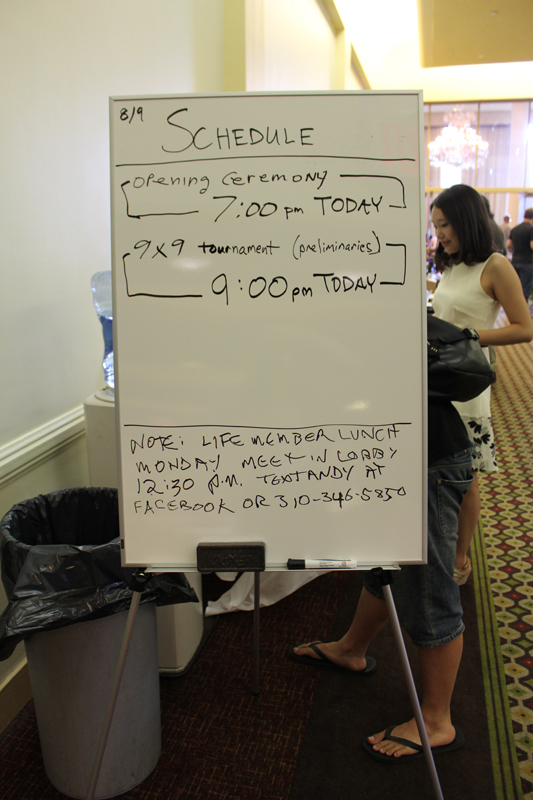 8/9
SCHEDULE
Opening Ceremony
7:00 pm TODAY
9x9 tournament (preliminaries)
9:00 pm TODAY
NOTE: LIFE MEMBER LUNCH
MONDAY MEET IN LOBBY
12:30 P.M. TEXT ANDY AT
FACEBOOK OR 310-346-5850